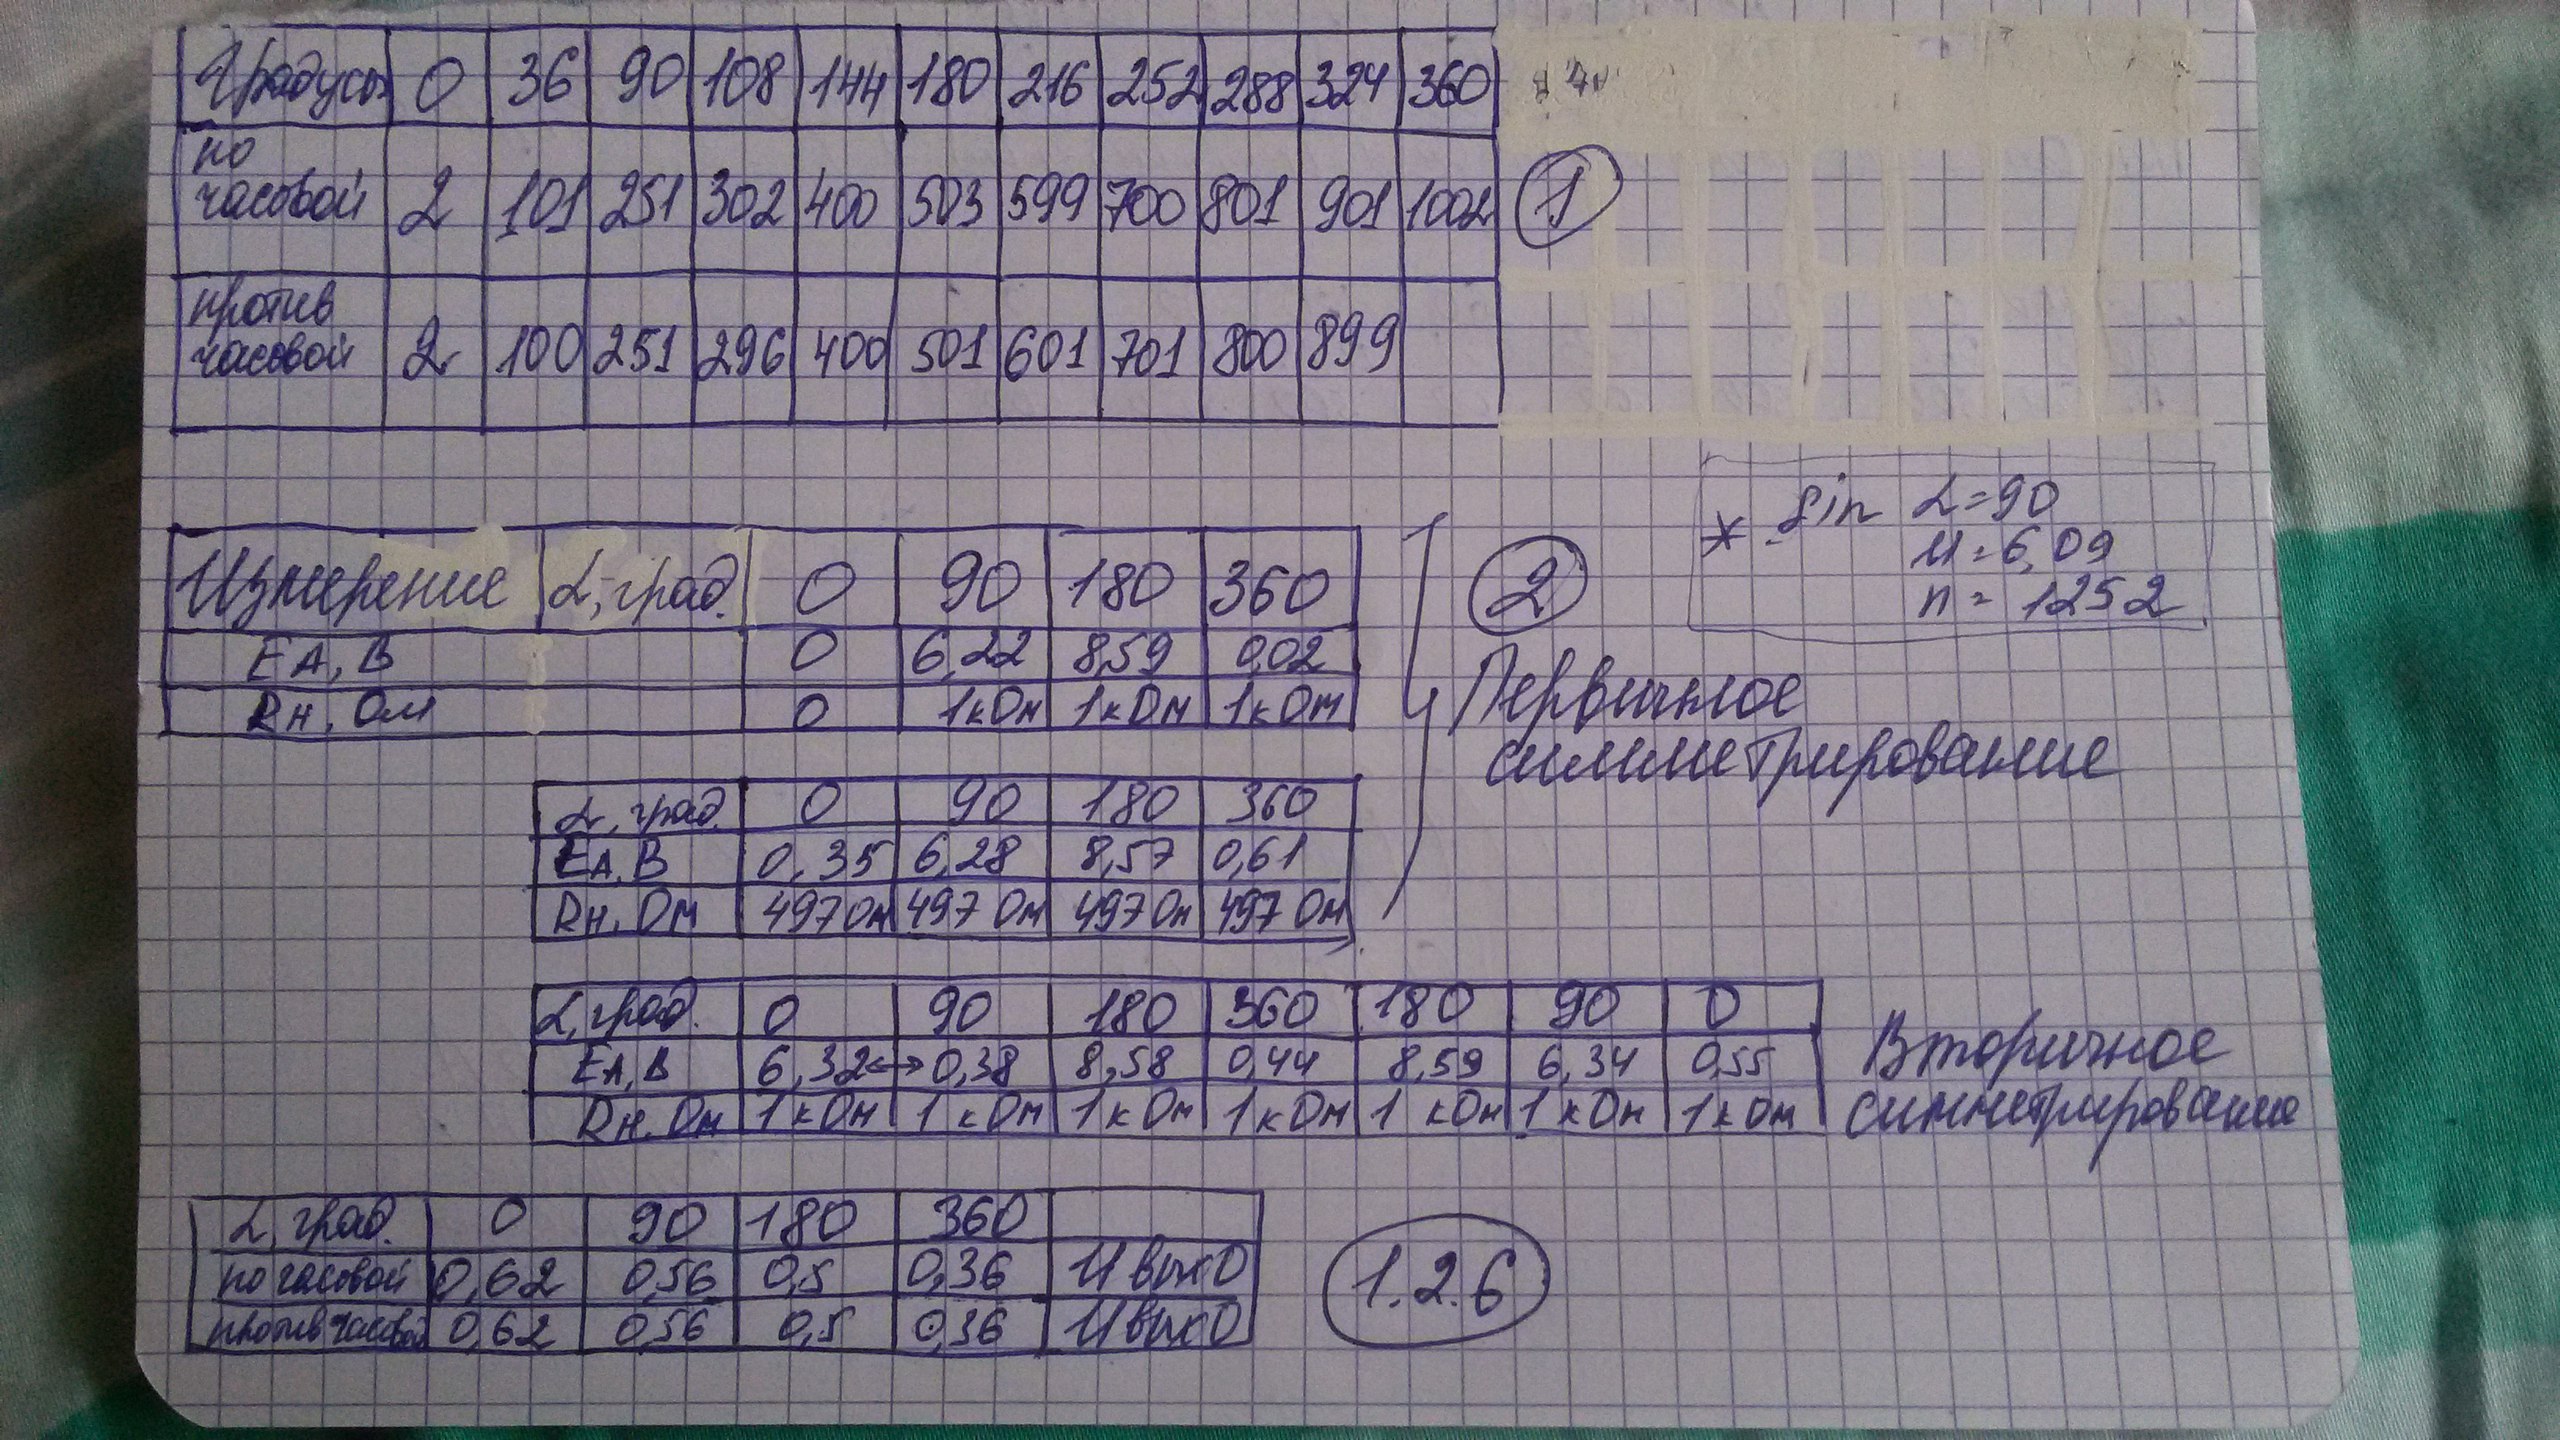 Градусы 0 36 90 108 144 180 216 252 288 324 360
по часовой 2 101 251 302 400 503 599 700 801 901 1002
1
против часовой 2 100 251 296 400 501 601 701 800 899
* sin α=90
U=6,09
n=1252
Измерение α, град. 0 90 180 360
EА, В 0 6,22 8,59 0,02
Rн, Ом 0 1кОм 1кОм 1кОм
2
Первичное
симметрирование
α, град. 0 90 180 360
EА, В 0,35 6,28 8,57 0,61
Rн, Ом 497 Ом 497 Ом 497 Ом 497 Ом
α, град. 0 90 180 360 180 90 0
EА, В 6,32↔0,38 8,58 0,44 8,59 6,34 0,55
Rн, Ом 1кОм 1кОм 1кОм 1кОм 1кОм 1кОм 1кОм
Вторичное
симметрирование
α, град. 0 90 180 360
по часовой 0,62 0,56 0,5 0,36 U вых0
против часовой 0,62 0,56 0,5 0,36 U вых0
1.2.6